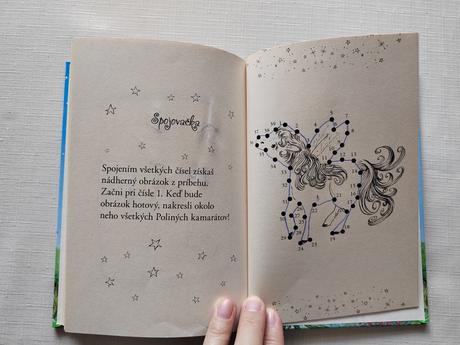 Spojovačka
Spojením všetkých čísel získaš
nádherný obrázok z príbehu.
Začni pri čísle 1. Keď bude
obrázok hotový, nakresli okolo
neho všetkých Poliných kamarátov!